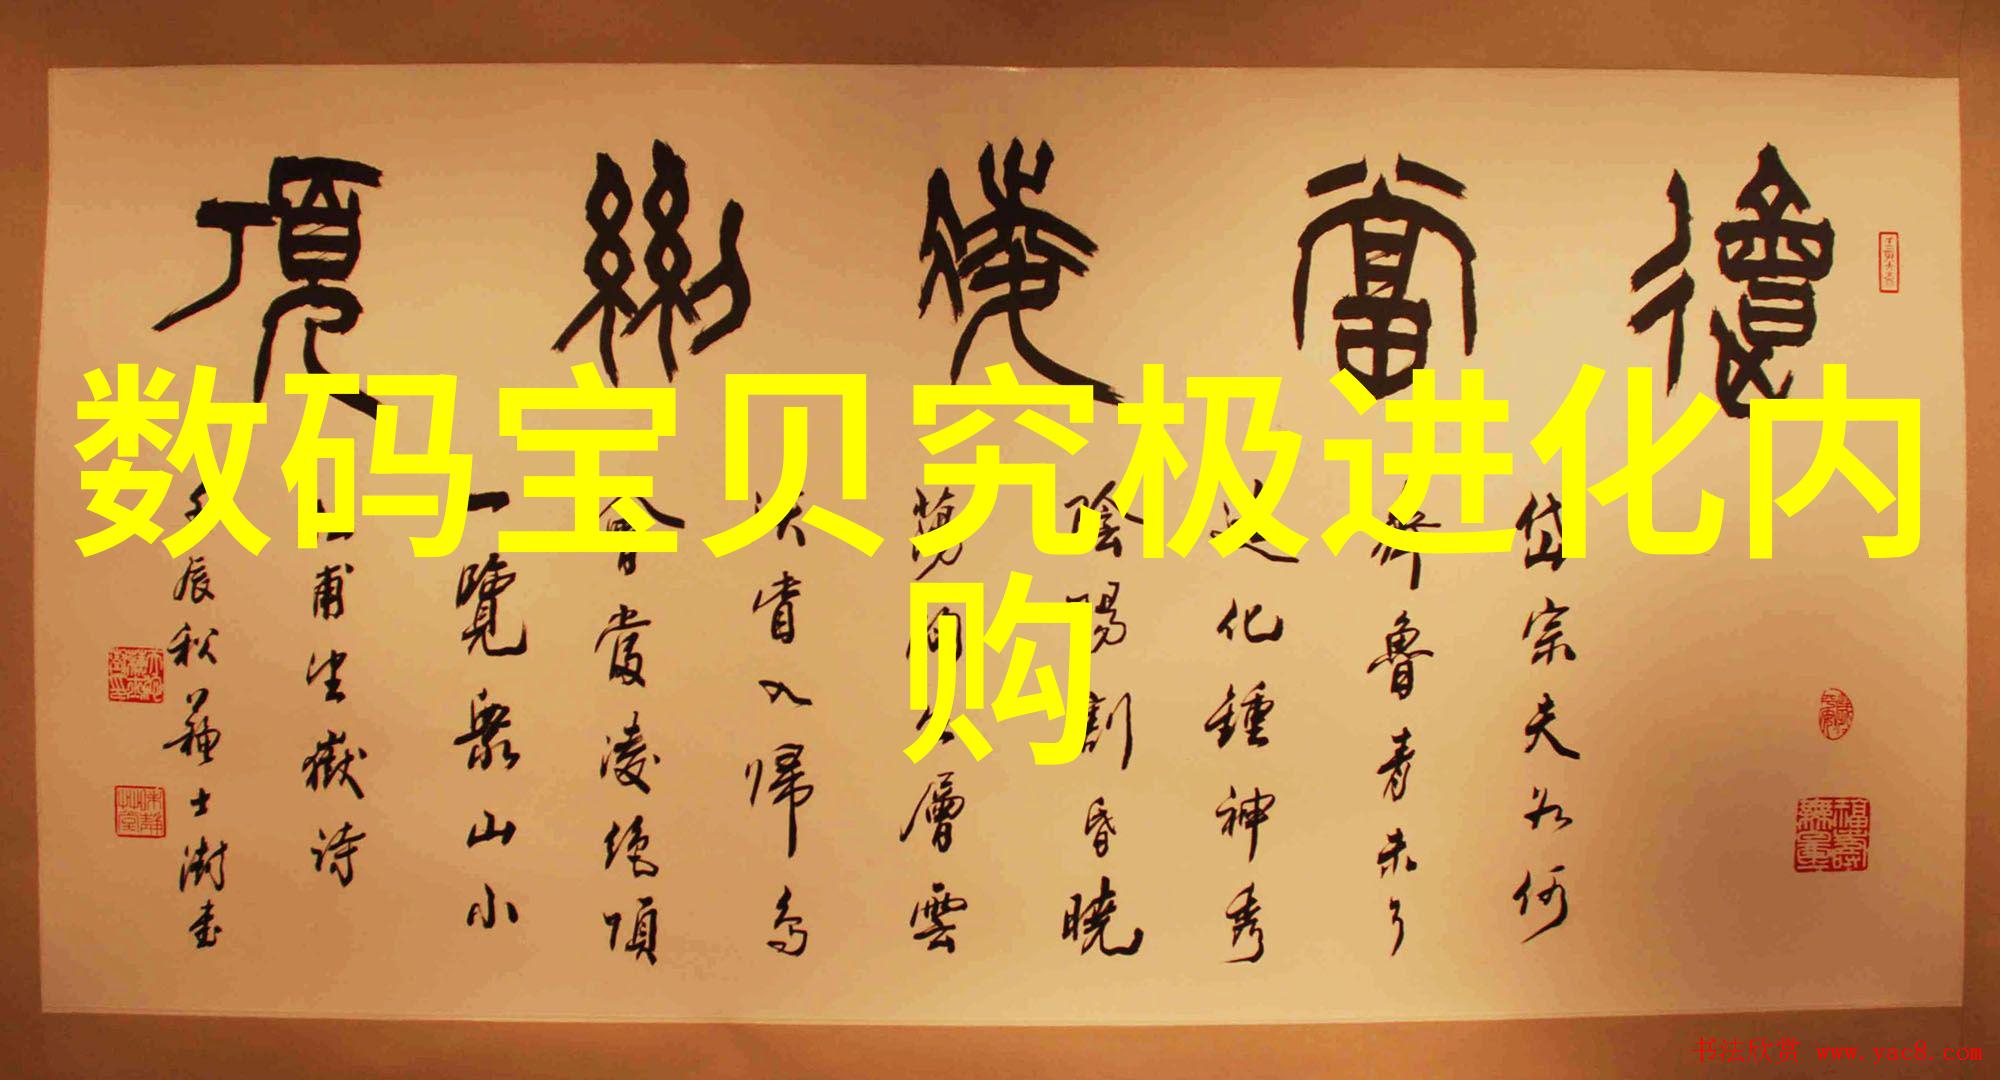 數码宝贝究极进化内
购
會當凌絕頂
岱宗夫如何
齊魯青未了
造化鍾神秀
陰陽割昏曉
蕩胸生層雲
決眥入歸鳥
會當凌絕頂
一覽衆山小
杜甫望嶽詩
壬辰秋蘇士澍書
福壽無量
书法欣赏 www.yac8.com